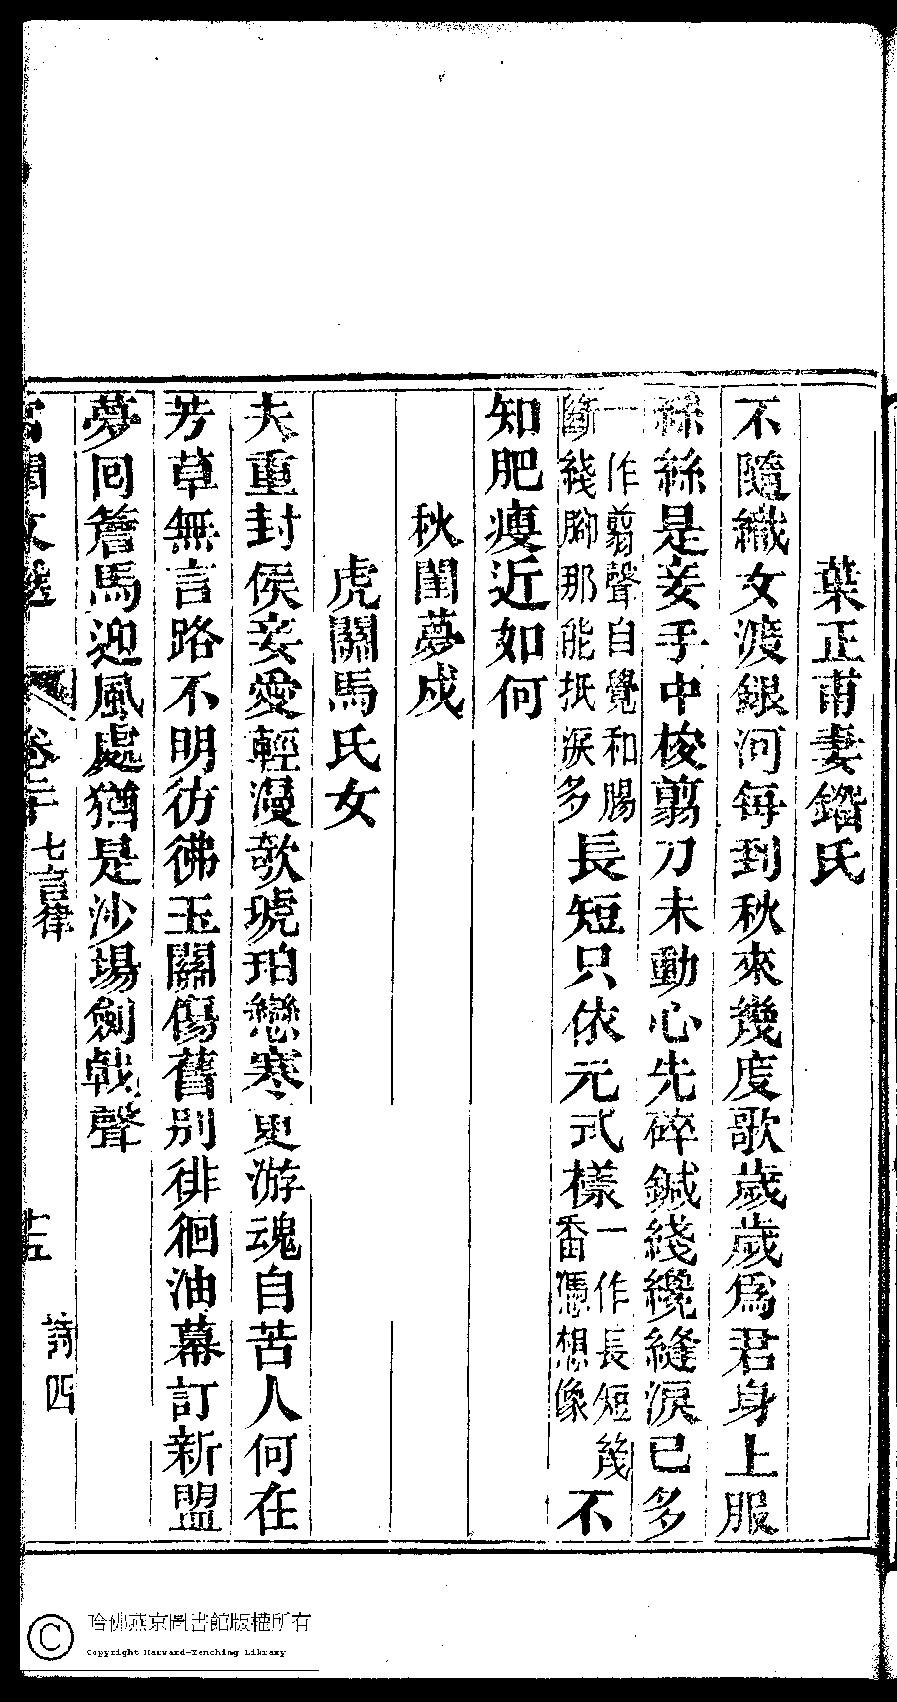 葉正甫妻鎦氏
不隨織女渡銀河每到秋來幾度歌歲歲爲君身上服
絲絲是妾手中梭翦刀未動心先碎鍼綫纔縫淚已多
一作翦聲自覺和腸
斷綫腳那能抵淚多
長短只依元式樣
一作長短幾
番憑想像
不
知肥瘦近如何
秋閨夢戍
虎關馬氏女
夫重封侯妾愛輕漫欹琥珀戀寒更游魂自苦人何在
芳草無言路不明彷彿玉關傷舊別徘徊油幕訂新盟
夢回簷馬迎風處猶是沙場劍戟聲
宮閨文選
卷二十
七言律
十五
詩四
哈佛燕京圖書館版權所有
Copyright Harvard-Yenching Library